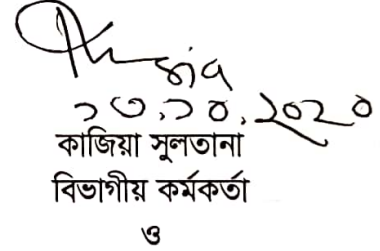 ১৩.১০.২০২০
কাজিয়া সুলতানা
বিভাগীয় কর্মকর্তা
ও